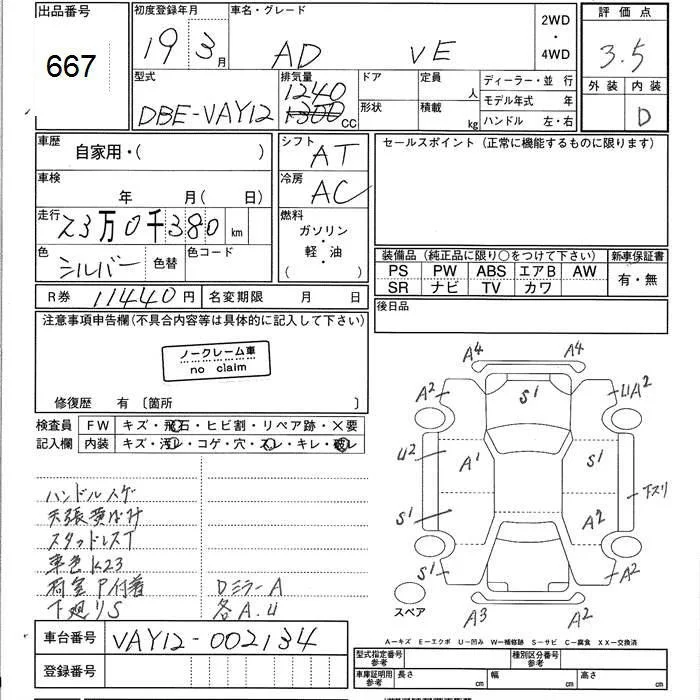 出品番号
667
初度登録年月
19 3 月
車名・グレード
AD VE
2WD
・
4WD
評価点
3.5
外装 内装
D
型式
DBE-VAY12
排気量
1240
1300 CC
ドア
形状
定員
人
積載
kg
ディーラー・並 行
モデル年式 年
ハンドル 左・右
車歴
自家用・( )
車検
年 月( 日)
走行
23万0千380 km
色
シルバー
色替
色コード
シフト
AT
冷房
AC
燃料
ガソリン
・
軽・油
( )
セールスポイント (正常に機能するものに限ります)
装備品 (純正品に限り○をつけて下さい)
新車保証書
PS PW ABS エアB AW
SR ナビ TV カワ
有・無
R券 11440 円
名変期限 月 日
後日品
注意事項申告欄(不具合内容等は具体的に記入して下さい)
ノークレーム車
no claim
修復歴 有 〔箇所 〕
検査員
記入欄
FW キズ・飛石・ヒビ割・リペア跡・×要
内装 キズ・汚レ・コゲ・穴・スレ・キレ・破レ
ハンドルスゲ
天張黄ばみ
スタッドレスT
車色K23
荷室P付着
下廻りS
DミラーA
各A.U
A4 A4
A2 S1 U1A2
U2 A1 S1
下スリ
S1 A2
S1 A2
A3 A2
スペア
A―キズ E―エクボ U―凹み W―補修跡 S―サビ C―腐食 XX―交換済
車台番号 VAY12-002134
登録番号
型式指定番号
参考
種別区分番号
参考
車庫証明用
参考
長さ cm 幅 cm 高さ cm